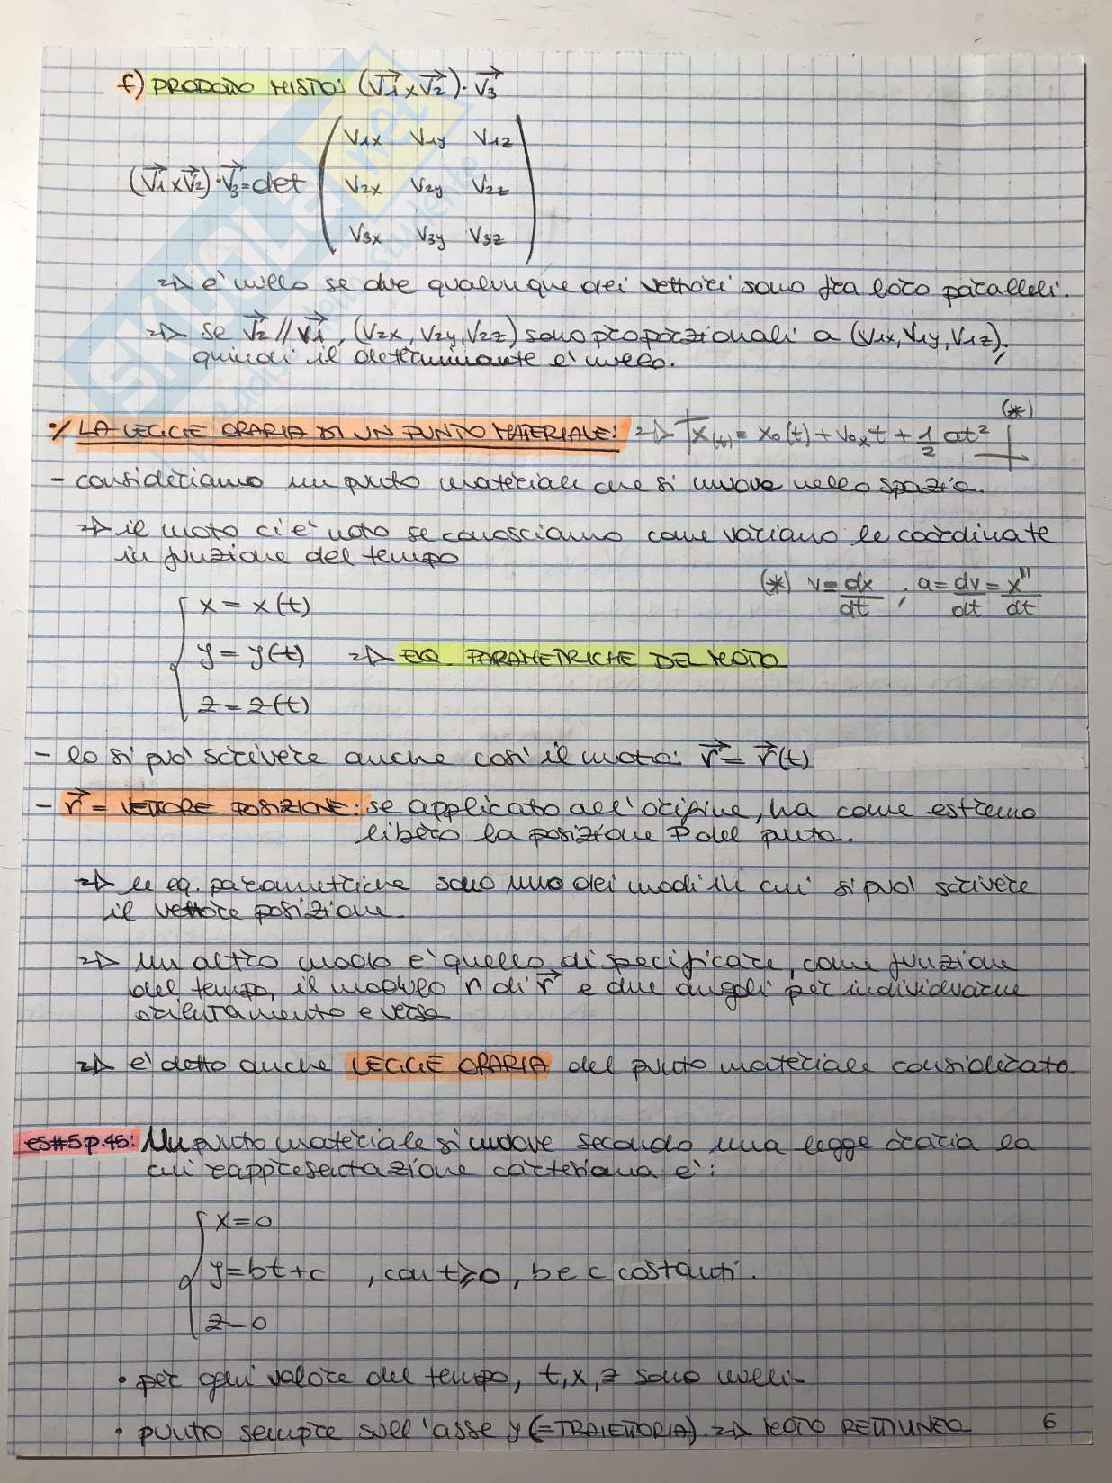 f) PRODODO MISTO: (V₁ x V₂) · V₃
V₁x V₁y V₁z
(V₁ x V₂) · V₃ = det V₂x V₂y V₂z
V₃x V₃y V₃z
=> e' nullo se due qualunque dei vettori sono fra loro paralleli.
=> se V₂ // V₁, (V₂x, V₂y, V₂z) sono proporzionali a (V₁x, V₁y, V₁z),
quindi il determinante e' nullo.
(*)
LA LEGGE ORARIA DI UN PUNTO MATERIALE: => x(t) = x₀(t) + v₀x t + 1/2 at²
- consideriamo un punto materiale che si muove nello spazio.
=> il moto ci e' noto se conosciamo come variano le coordinate
in funzione del tempo
(*) v = dx/dt ; a = dv/dt = x"/dt
x = x(t)
y = y(t) => EQ. PARAMETRICHE DEL MOTO
z = z(t)
- lo si puo' scrivere anche cosi' il moto: r = r(t)
- r = VETTORE POSIZIONE: se applicato all'origine, ha come estremo
libero la posizione P del punto.
=> le eq. parametriche sono uno dei modi in cui si puo' scrivere
il vettore posizione.
=> un altro modo e' quello di specificare, come funzione
del tempo, il modulo r di r e due angoli per individuarne
orientamento e verso
=> e' detto anche LEGGE ORARIA del punto materiale considerato
es#5 p.45: Un punto materiale si muove secondo una legge oraria la
cui rappresentazione cartesiana e':
x = 0
y = bt + c , con t ≥ 0, b e c costanti.
z = 0
• per ogni valore del tempo, t, x, z sono nulli.
• punto sempre sull'asse y (= TRAIETTORIA) => MOTO RETTILINEO 6